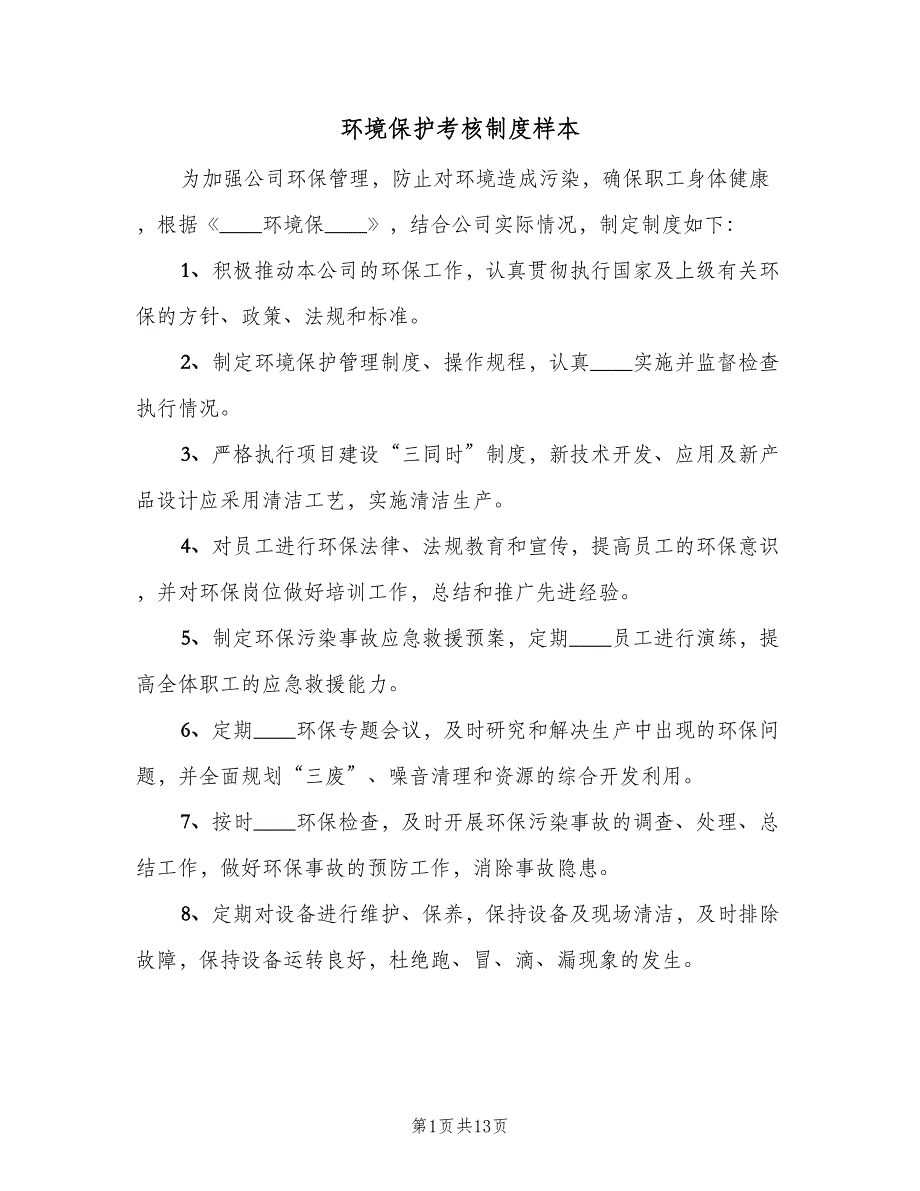 环境保护考核制度样本
为加强公司环保管理，防止对环境造成污染，确保职工身体健康
，根据《____环境保____》，结合公司实际情况，制定制度如下：
1、积极推动本公司的环保工作，认真贯彻执行国家及上级有关环
保的方针、政策、法规和标准。
2、制定环境保护管理制度、操作规程，认真____实施并监督检查
执行情况。
3、严格执行项目建设“三同时”制度，新技术开发、应用及新产
品设计应采用清洁工艺，实施清洁生产。
4、对员工进行环保法律、法规教育和宣传，提高员工的环保意识
，并对环保岗位做好培训工作，总结和推广先进经验。
5、制定环保污染事故应急救援预案，定期____员工进行演练，提
高全体职工的应急救援能力。
6、定期____环保专题会议，及时研究和解决生产中出现的环保问
题，并全面规划“三废”、噪音清理和资源的综合开发利用。
7、按时____环保检查，及时开展环保污染事故的调查、处理、总
结工作，做好环保事故的预防工作，消除事故隐患。
8、定期对设备进行维护、保养，保持设备及现场清洁，及时排除
故障，保持设备运转良好，杜绝跑、冒、滴、漏现象的发生。
第1页共13页